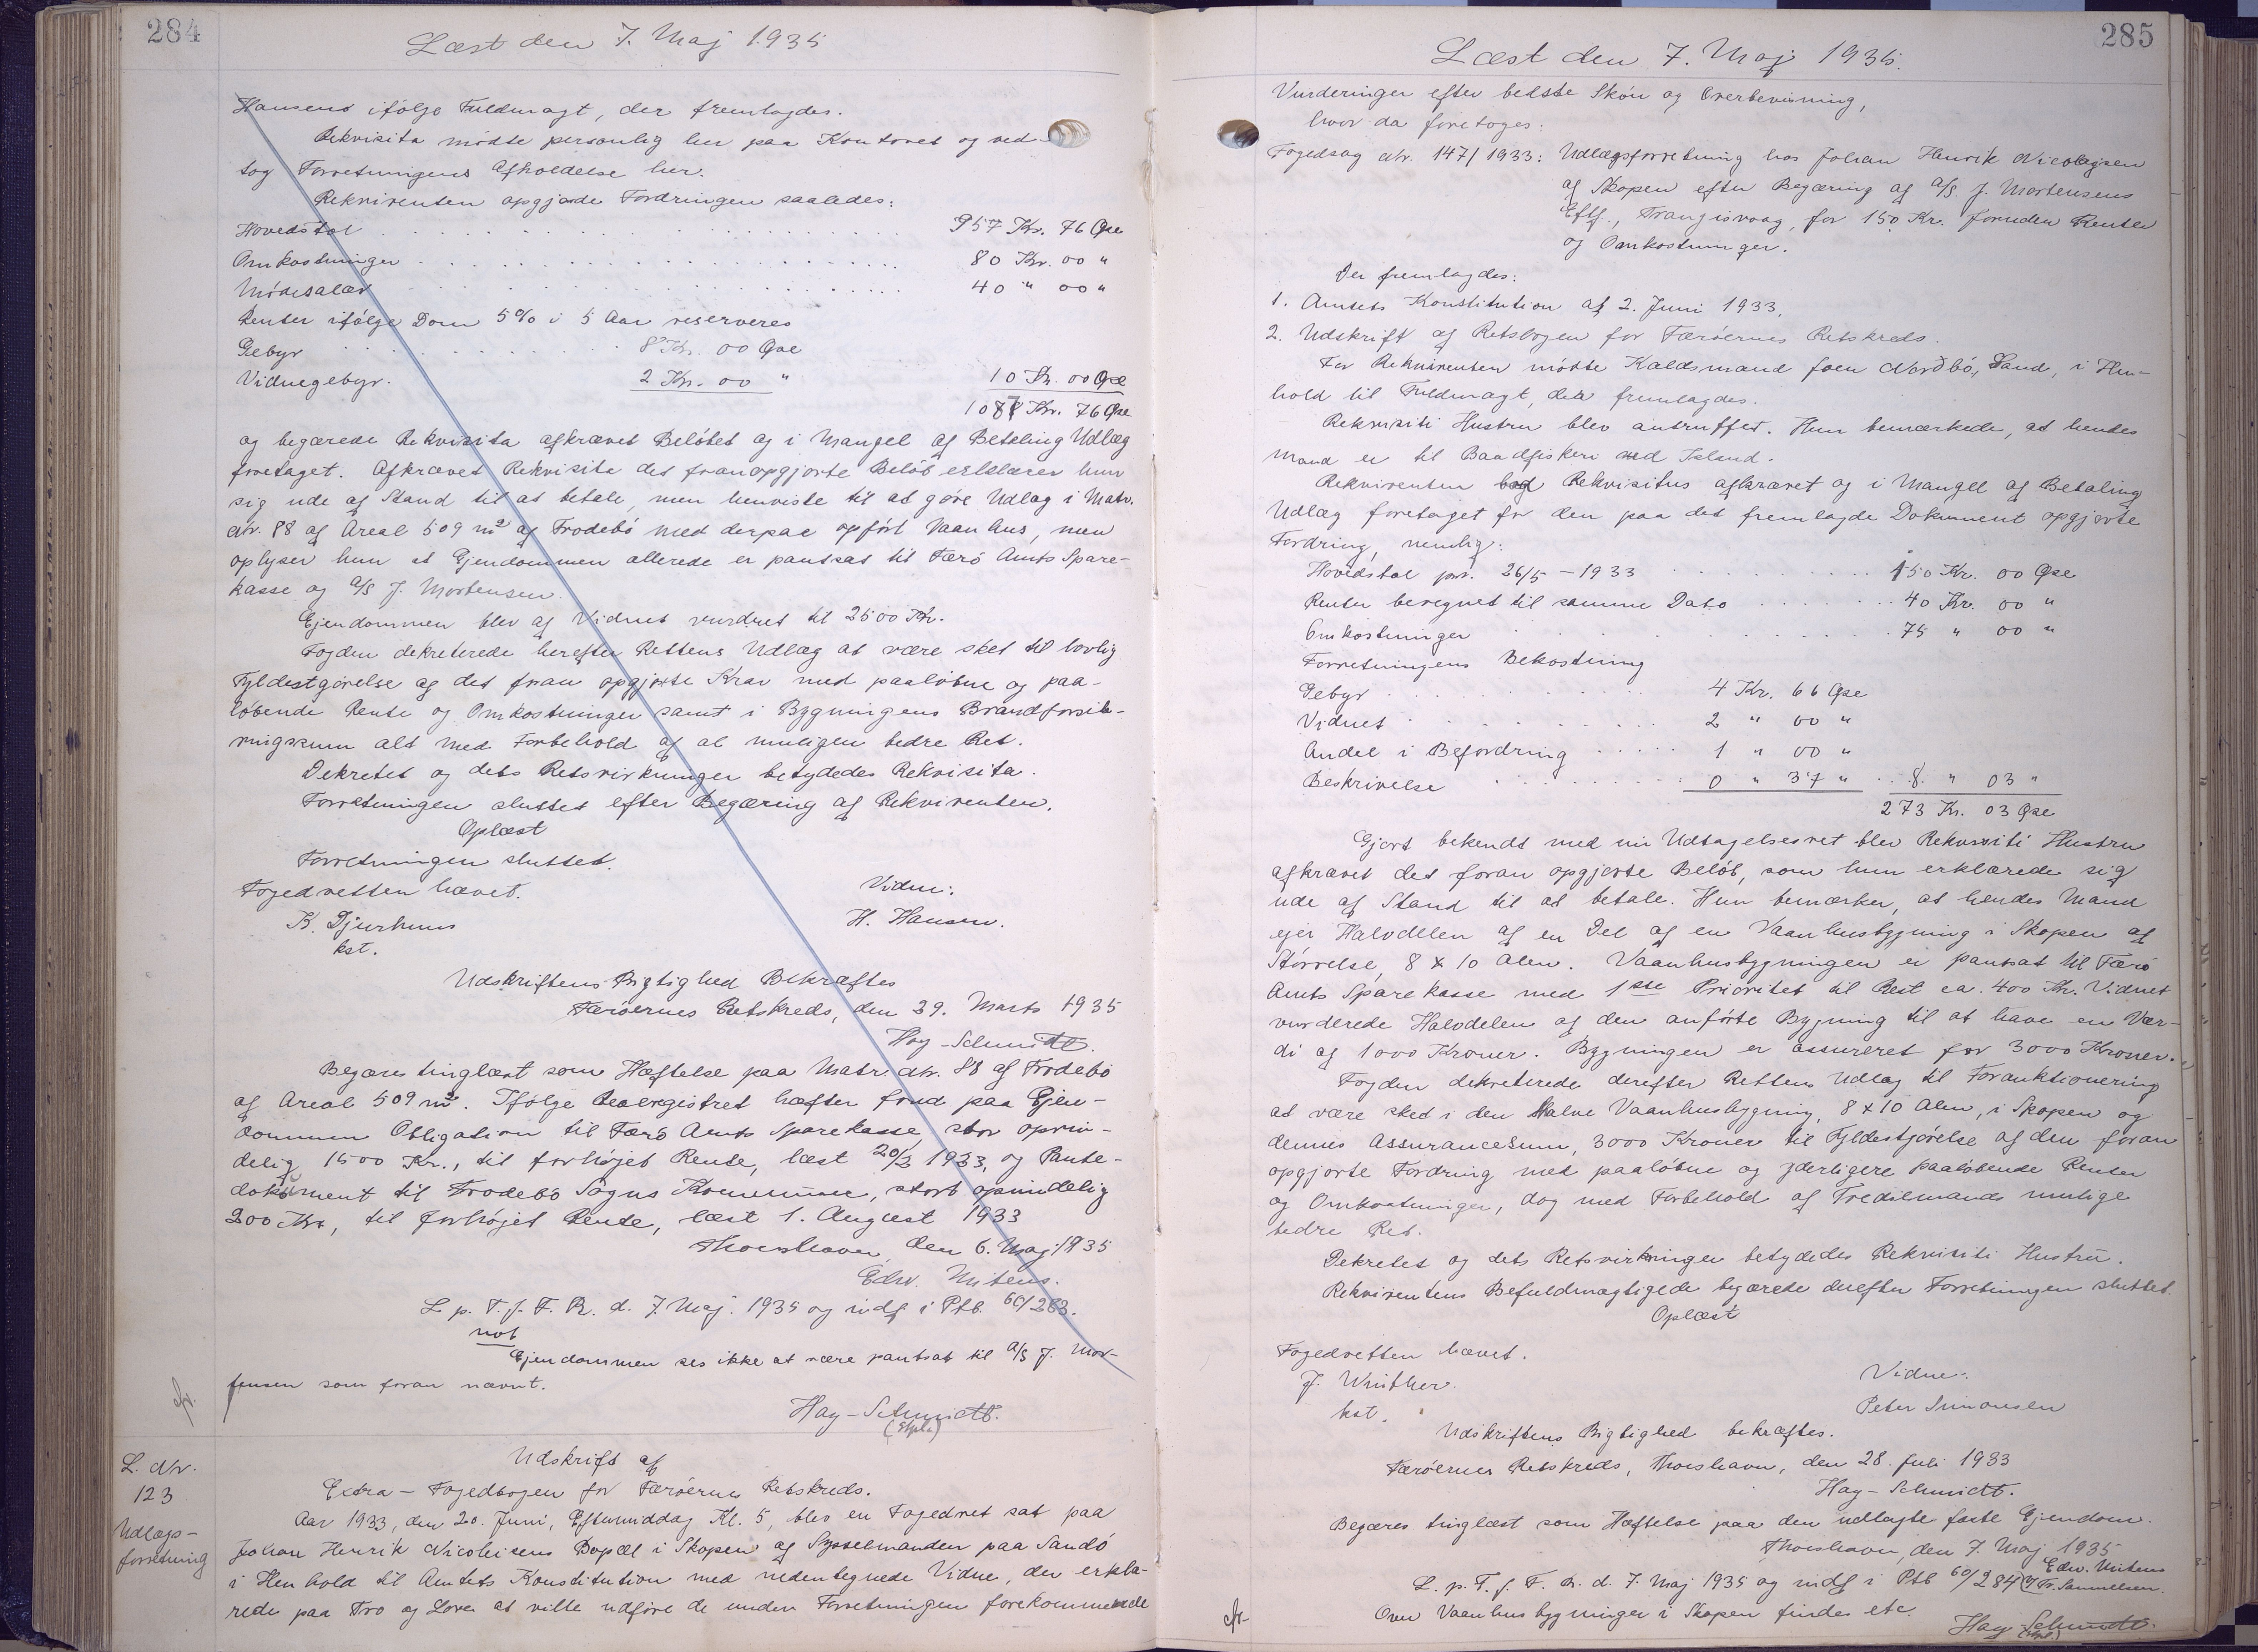 284
Læst den 7. Maj 1935
Hansens ifølge Fuldmagt, der fremlagdes.
Rekvisita mødte personlig her paa Kontoret og ved-
tog Forretningens Afholdelse her.
Rekvirenten opgjorde Fordringen saaledes:
Hovedstol . . . . 957 Kr. 76 Øre
Omkostninger . . . . 80 Kr. 00 "
Mødesalær . . . . 40 " 00 "
Renter ifølge Dom 5% i 5 Aar reserveres
Gebyr . . . . 8 Kr. 00 Øre
Vidnegebyr. 2 Kr. 00 " 10 Kr. 00 Øre
1087 Kr. 76 Øre
og begærede Rekvisita afkrævet Beløbet og i Mangel af Betaling Udlæg
foretaget. Afkrævet Rekvisita det foranopgjorte Beløb erklærer hun
sig ude af Stand til at betale, men henviste til at gøre Udlæg i Matr.
Nr. 88 af Areal 509 m² af Frodebø med derpaa opført Vaanhus, men
oplyser hun at Ejendommen allerede er pantsat til Færø Amts Spare-
kasse og A/S J. Mortensen.
Ejendommen blev af Vidnet vurdret til 2500 Kr.
Fogden dekreterede herefter Rettens Udlæg at være sket til lovlig
Fyldestgørelse af det foran opgjorte Krav med paaløbne og paa-
løbende Rente og Omkostninger samt i Bygningens Brandforsik-
ringssum alt med Forbehold af al muligen bedre Ret.
Dekretet og dets Retsvirkninger betydedes Rekvisita.
Forretningen sluttet efter Begæring af Rekvirenten.
Oplæst
Forretningen sluttet.
Fogedretten hævet. Vidne:
K. Djurhuus H. Hansen.
kst.
Udskriftens Rigtighed Bekræftes
Færøernes Retskreds, den 29. Marts 1935
Hay-Schmidt.
Begæres tinglæst som Hæftelse paa Matr. Nr. 88 af Frodebø
af Areal 509 m². Ifølge Realregistret hæfter forud paa Ejen-
dommen Obligation til Færø Amts Sparekasse, stor oprin-
delig 1500 Kr., til forhøjet Rente, læst 20/3 1933, og Pante-
dokument til Frodebø Sogns Kommune, stort oprindelig
200 Kr., til forhøjet Rente, læst 1. August 1933
Thorshavn, den 6. Maj 1935
Edw. Mitens.
L. p. T. f. F. R. d. 7. Maj. 1935 og indf i Ptb. 60/283.
not
Ejendommen ses ikke at være pantsat til A/S J. Mor-
tensen som foran nævnt.
cfr.
Hay-Schmidt.
L. Nr.
123
Udlægs-
forretning
Udskrift af
Extra-Fogedbogen for Færøernes Retskreds.
Aar 1933, den 20. Juni, Eftermiddag Kl. 5, blev en Fogedret sat paa
Johan Henrik Nicolaisens Bopæl i Skopen af Sysselmanden paa Sandø
i Henhold til Amtets Konstitution med nedentegnede Vidne, der erklæ-
rede paa Tro og Love at ville udføre de under Forretningen forekommende
285
Læst den 7. Maj 1935.
Vurderinger efter bedste Skøn og Overbevisning,
hvor da foretoges:
Fogedsag Nr. 147/1933: Udlægsforretning hos Johan Henrik Nicolajsen
af Skopen efter Begæring af A/S J. Mortensens
Eftf., Trangisvaag, for 150 Kr. foruden Renter
og Omkostninger.
Der fremlagdes:
1. Amtets Konstitution af 2. Juni 1933.
2. Udskrift af Retsbogen for Færøernes Retskreds.
For Rekvirenten mødte Kaldsmand Joen Norðbø, Sand, i Hen-
hold til Fuldmagt, der fremlagdes.
Rekvisiti Hustru blev antruffet. Hun bemærkede, at hendes
Mand er til Baadfiskeri ved Island.
Rekvirenten bad Rekvisitus afkrævet og i Mangel af Betaling
Udlæg foretaget for den paa det fremlagde Dokument opgjorte
Fordring, nemlig:
Hovedstol pr. 26/5 - 1933 . . . . 150 Kr. 00 Øre
Renter beregnet til samme Dato . . . . 40 Kr. 00 "
Omkostninger . . . . 75 " 00 "
Forretningens Bekostning
Gebyr . . . . 4 Kr. 66 Øre
Vidnet . . . . 2 " 00 "
Andel i Befordring . . . . 1 " 00 "
Beskrivelse . . . . 0 " 37 " . . 8 " 03 "
273 Kr. 03 Øre
Gjort bekendt med sin Udtagelsesret blev Rekvisiti Hustru
afkrævet det foran opgjorte Beløb, som hun erklærede sig
ude af Stand til at betale. Hun bemærker, at hendes Mand
ejer Halvdelen af en Del af en Vaanhusbygning i Skopen af
Størrelse, 8 x 10 Alen. Vaanhusbygningen er pantsat til Færø
Amts Sparekasse med 1ste Prioritet til Rest ca. 400 Kr. Vidnet
vurderede Halvdelen af den anførte Bygning til at have en Vær-
di af 1000 Kroner. Bygningen er assureret for 3000 Kroner.
Fogden dekreterede derefter Rettens Udlæg til Forauktionering
at være sked i den Halve Vaanhusbygning, 8 x 10 Alen, i Skopen og
dennes Assurancesum, 3000 Kroner til Fyldestgørelse af den foran
opgjorte Fordring med paaløbne og yderligere paaløbende Renter
og Omkostninger, dog med Forbehold af Trediemands mulige
bedre Ret.
Dekretet og dets Retsvirkninger betydedes Rekvisiti Hustru.
Rekvirentens Befuldmægtigede begærede derefter Forretningen sluttet.
Oplæst
Fogedretten hævet.
J. Winther. Vidne:
kst. Peter Simonsen
Udskriftens Rigtighed bekræftes.
Færøernes Retskreds, Thorshavn, den 28. Juli 1933
Hay-Schmidt.
Begæres tinglæst som Hæftelse paa den udlagte faste Ejendom.
Thorshavn, den 7. Maj 1935
Edw. Mitens
L. p. T. f. F. R. d. 7. Maj 1935 og indf i Ptb 60/284 Fr. Samuelsen.
Over Vaanhusbygninger i Skopen findes etc.
cfr.
Hay-Schmidt.